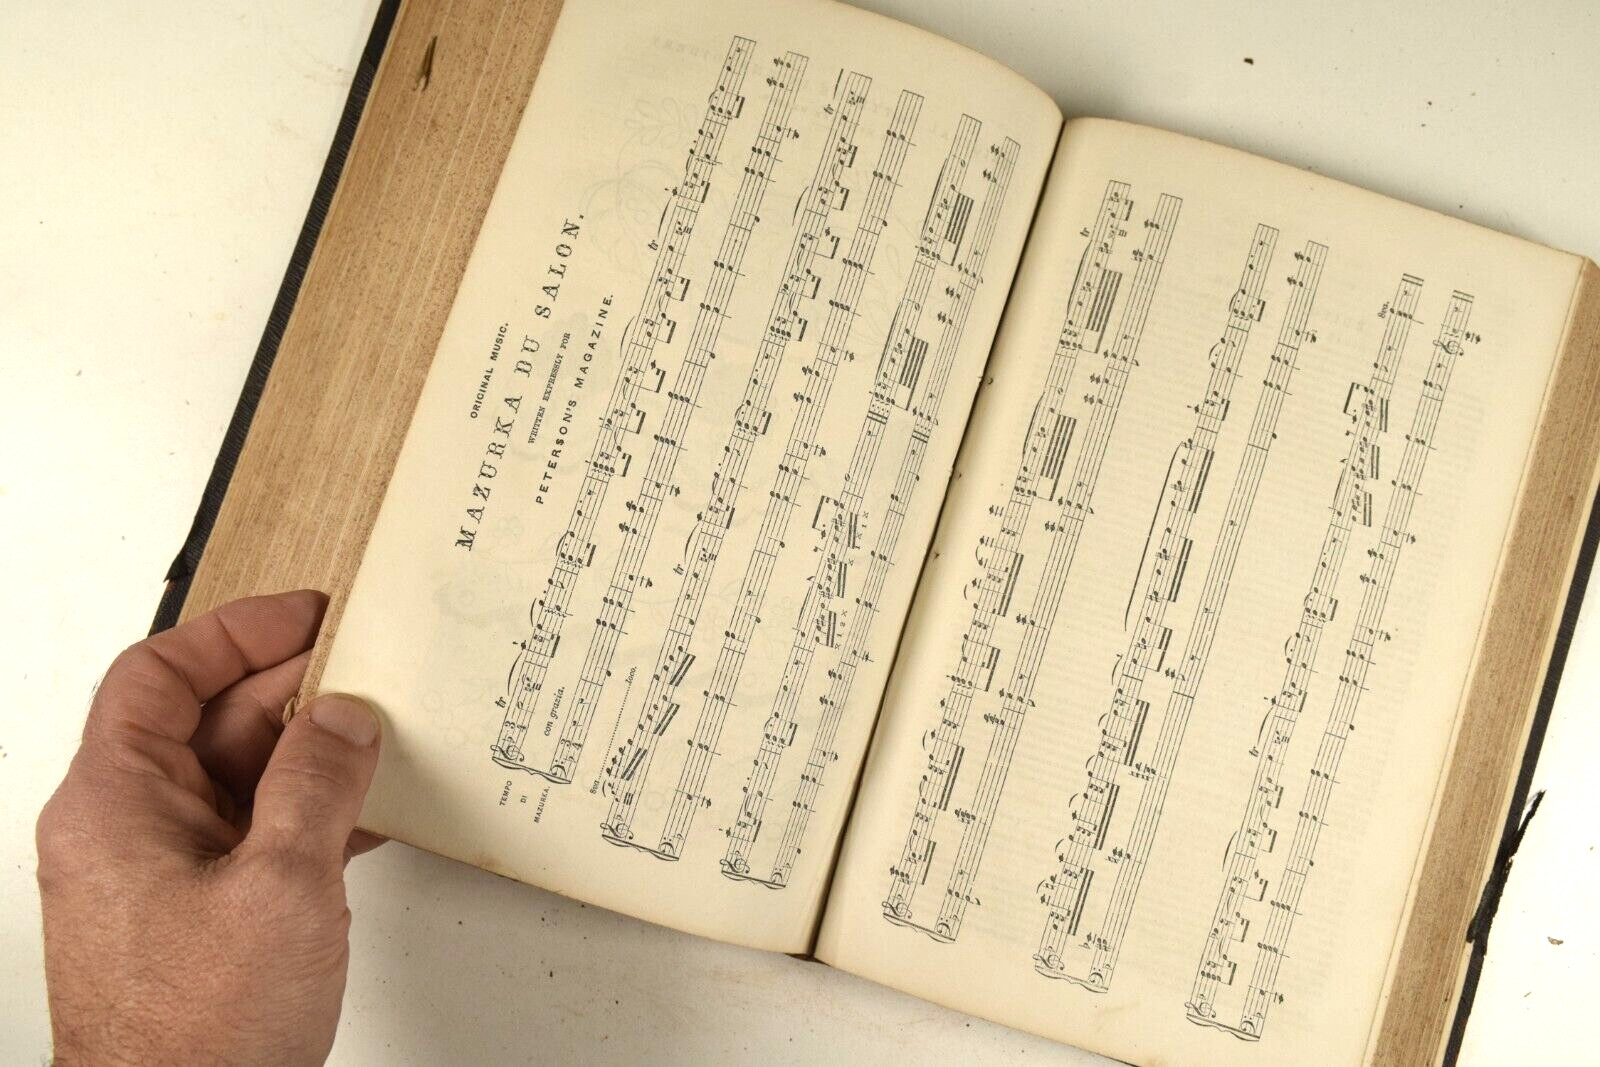 ORIGINAL MUSIC.
MAZURKA DU SALON.
WRITTEN EXPRESSLY FOR
PETERSON'S MAGAZINE.
TEMPO
DI
MAZURKA.
tr
3
4
con grazia.
3
4
tr
8va
loco.
tr
tr
x 1 2 x
x 1 x
tr
tr
8va.